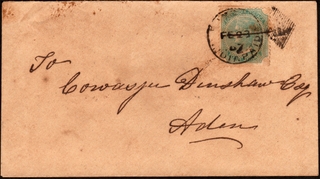 To
Cowasjee Dinshaw Esq
Aden